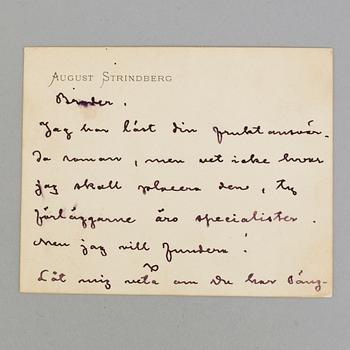 AUGUST STRINDBERG
Broder.
Jag har läst din fruktansvär-
da roman, men vet icke hvar
jag skall placera den, ty
förläggarne äro specialister.
Men jag vill fundera!
Låt mig veta om Du har